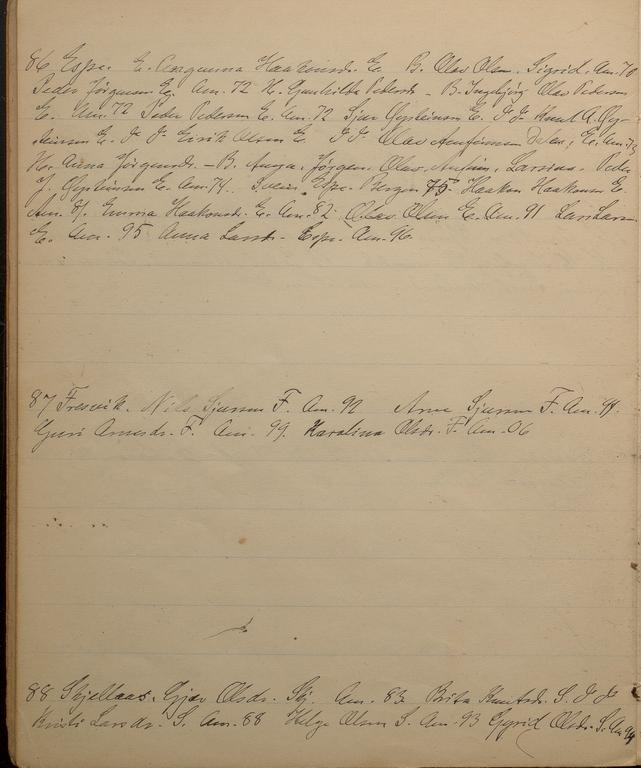 86 Espe. E. Anguna Haakonsdr. E. B. Olav Olsn. Sigrid. Am. 70
Peder Jörgensen E. Am. 72 H. Gunhilda Pedersd. - B. Ingebjörg Olav Pedersen
E. Am. 72 Peder Pedersen E. Am. 72 Sjur Öysteinsen E. Knut A. Öy-
steinsen E. Eirik Olsen E. Olav E. Am. 73
H. Anna Jörgensdr. - B. Anga, Jörgen, Olav, Larsina. Peder
J. Öysteinsen E. Am. 74. Svein Espe. Bergen 75 Haakon Haakonsen E.
Am. 81. Emma Haakonsdr. E. Am. 82 Olav Olsen E. Am. 91 Lars Larsen
E. Am. 95 Anna Larsdr. - Espe. Am. 96.
87 Fresvik. Nils Sjursen F. Am. 92 Arne Sjursen F. Am.
Guri Arnesdr. F. Am. 99. Karolina Olsdr. F. Am. 06
88 Skjellaas. Gjöa Olsdr. Skj. Am. 83. Brita Knutsdr. S.
Kristi Larsdr. S. Am. 88 Helge Olsen S. Am. 93 Sygrid Olsdr. S. Am 94